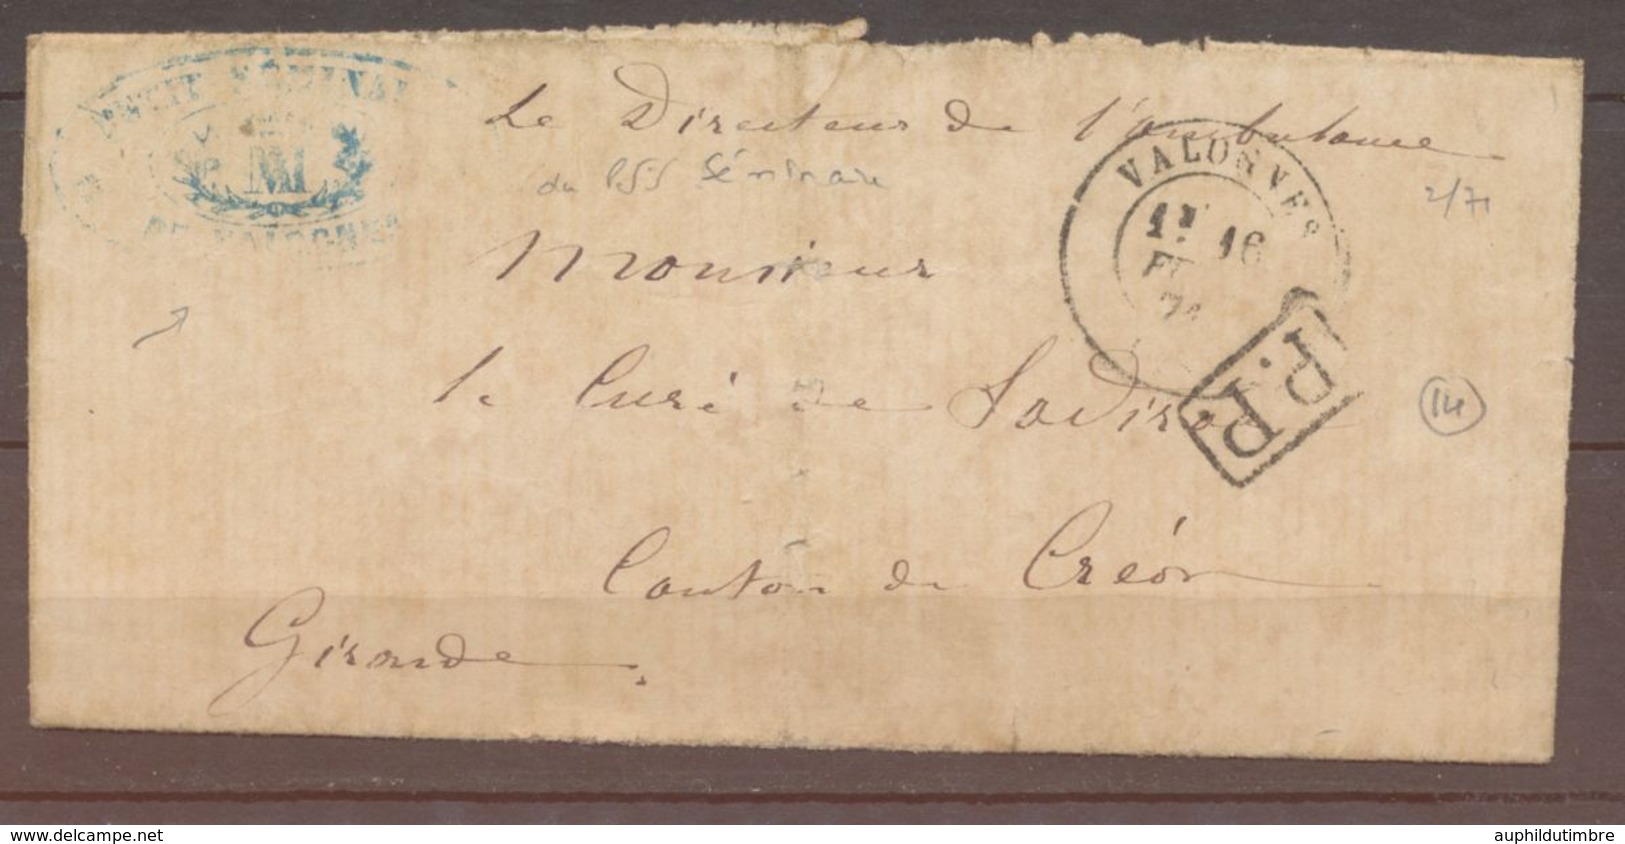 PETIT SÉMINAI
DE VALOGNES
M
Le Directeur de l'ambulance
du Séminaire
2/71
VALOGNES
1E 16
71
P.P.
Monsieur
le Curé de Sadirac
14
Canton de Créon
Gironde
www.delcampe.net
auphildutimbre